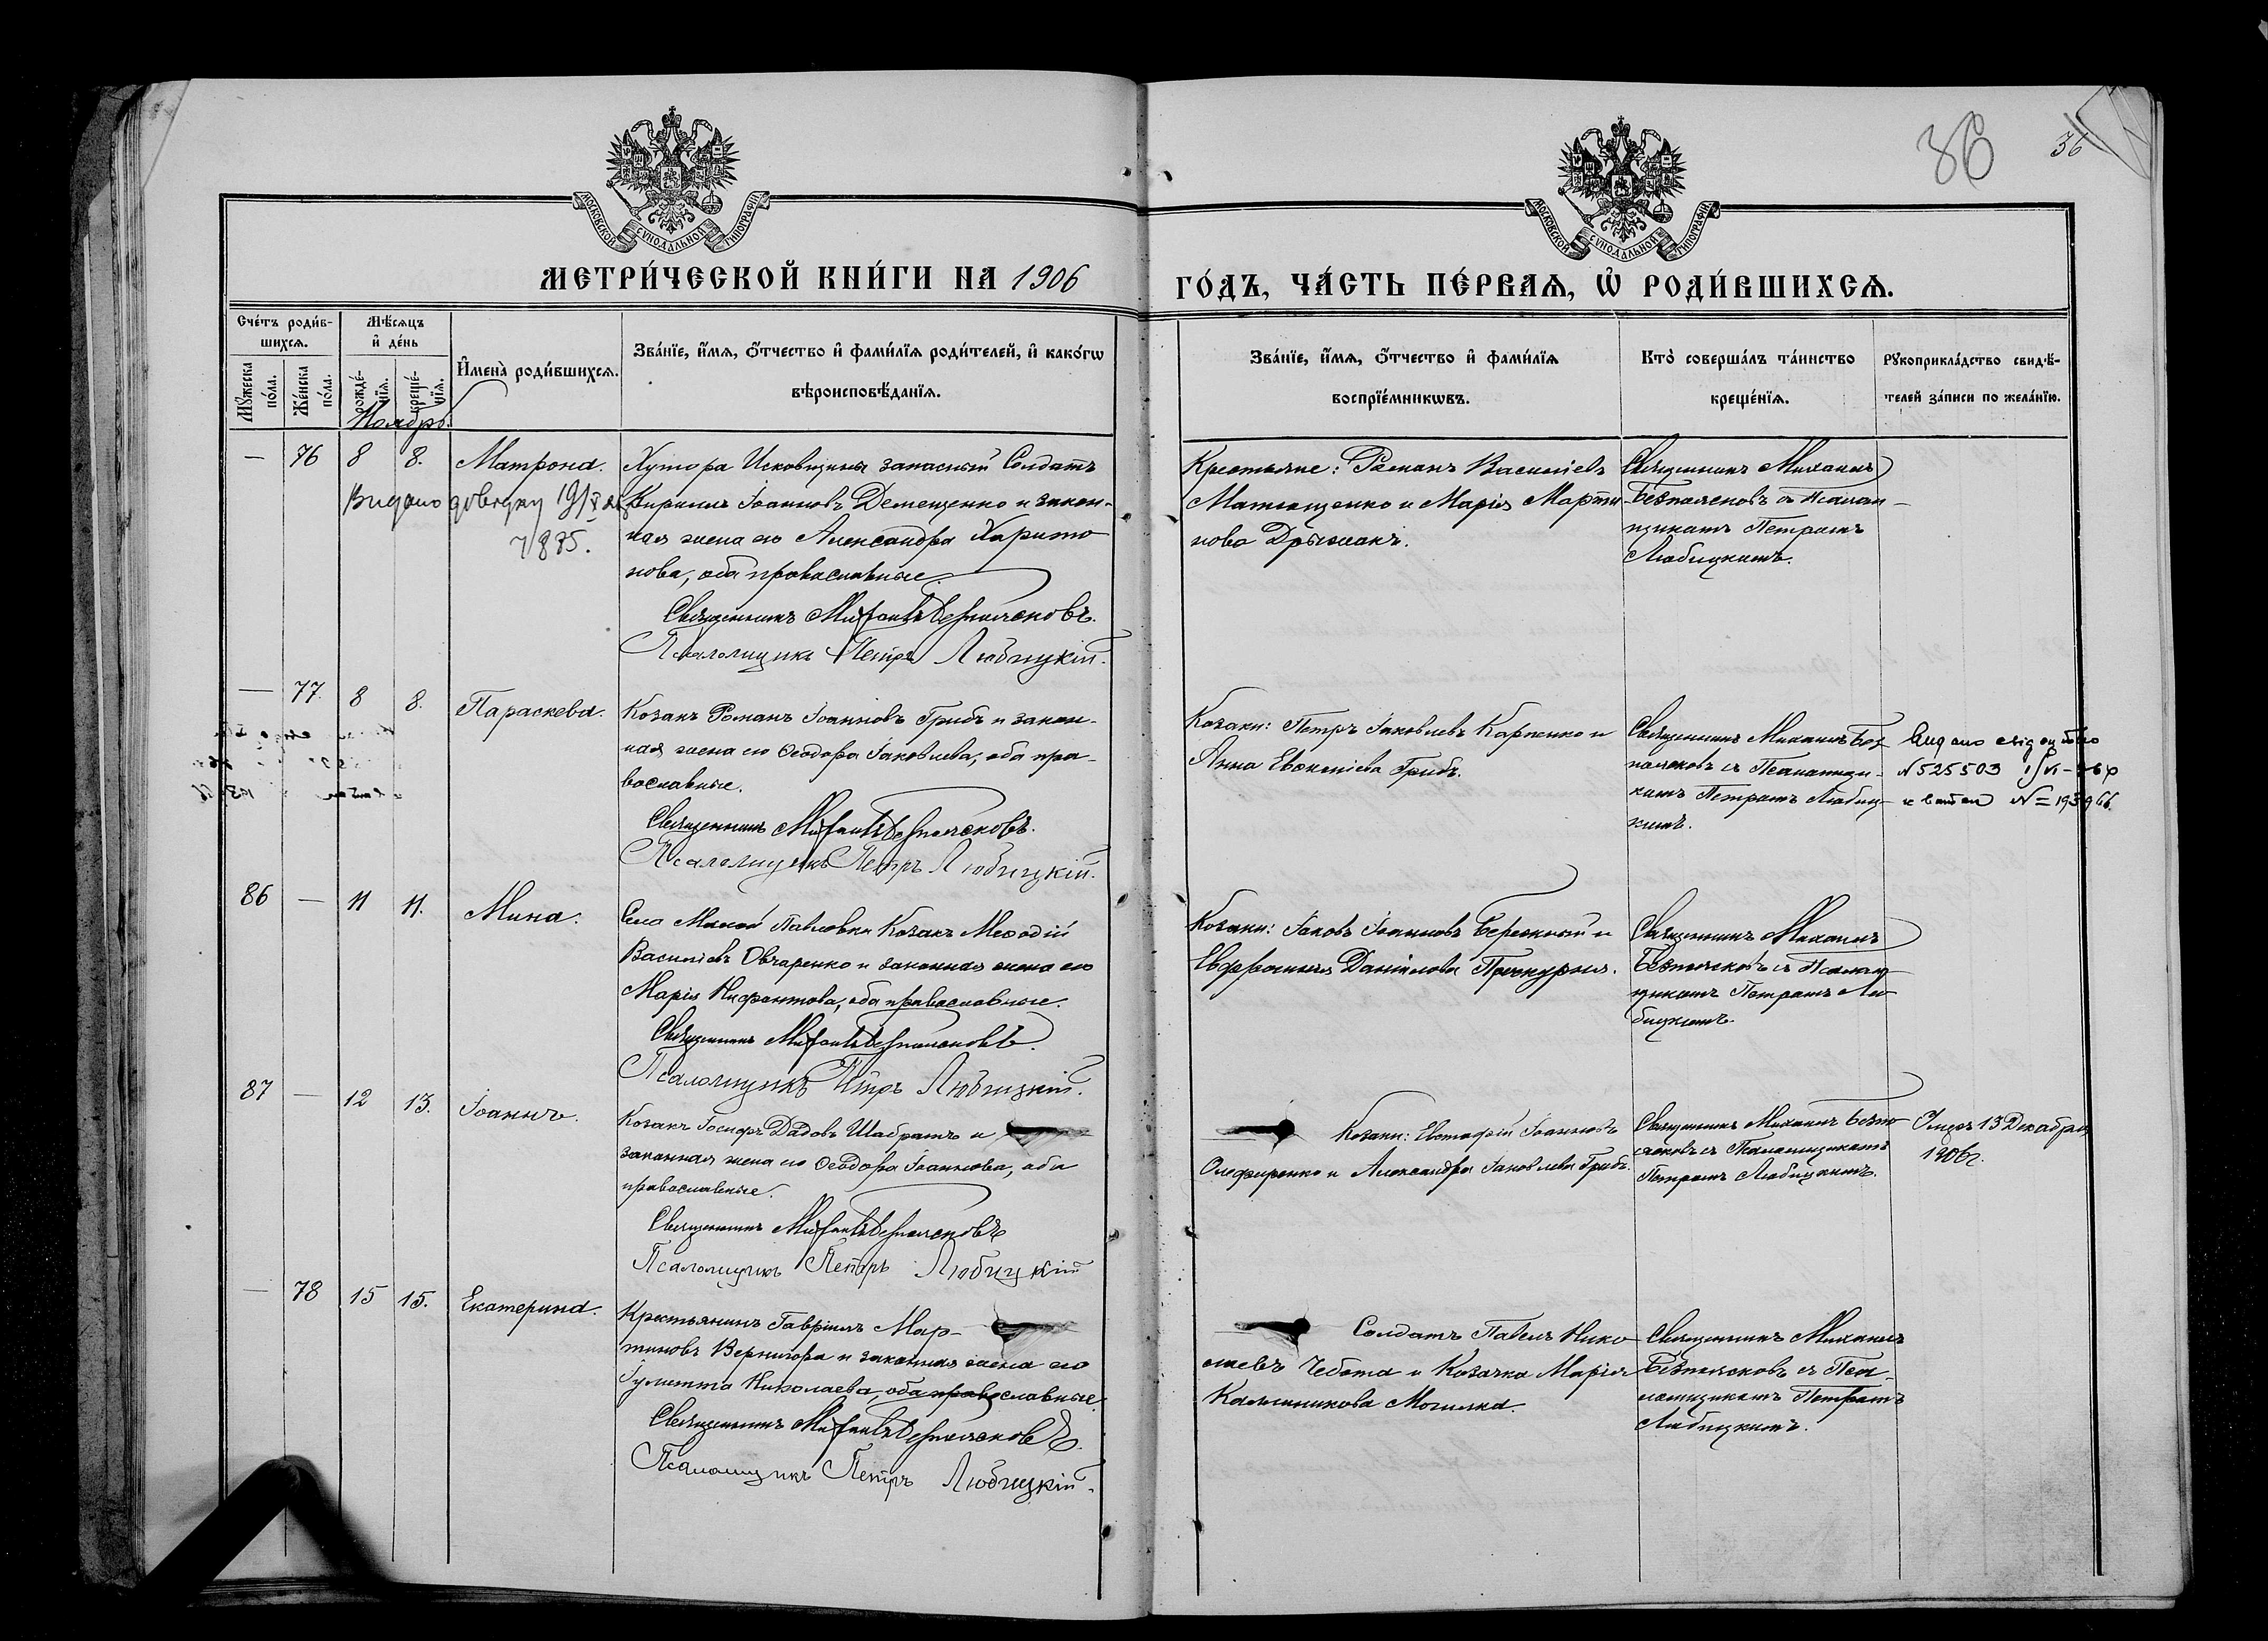 36
36
МОСКОВСКОЙ СУНОДАЛЬНОЙ ТИПОГРАФІИ
МОСКОВСКОЙ СУНОДАЛЬНОЙ ТИПОГРАФІИ
МЕТРИ́ЧЕСКОЙ КНИ́ГИ НА 1906
ГО́ДЪ, ЧА́СТЬ ПЕ́РВАѦ, Ѽ РОДИ́ВШИХСѦ.
Сче́тъ роди́в-
шихсѧ.
Мꙋ́жеска по́ла.
Же́нска по́ла.
Мѣ́сѧцъ
и҆ де́нь
рожде́-нїѧ.
креще́-нїѧ.
И҆мена̀ роди́вшихсѧ.
Зва́нїе, и҆́мѧ, ѻ҆́тчество и҆ фами́лїѧ роди́телей, и҆ како́гѡ
вѣроисповѣ́данїѧ.
Зва́нїе, и҆́мѧ, ѻ҆́тчество и҆ фами́лїѧ
воспрїе́мникѡвъ.
Кто̀ соверша́лъ та́инство
креще́нїѧ.
Рꙋкоприкла́дство свидѣ́-
телей за́писи по жела́нїю.
Ноябрь.
— 76 8 8. Матрона.
Видано довідку
7885.
Хутора Исковщины запасный Солдатъ
Кириллъ Іоанновъ Демещенко и закон-
ная жена его Александра Харито
нова, оба православные.
Священникъ Михаилъ Безпалчековъ.
Псаломщикъ Петръ Любицкій.
Крестьяне: Романъ Васильевъ
Матющенко и Марія Марти
нова Дрыжакъ.
Священникъ Михаилъ
съ Псалом-
щикомъ Петромъ
Любицкимъ.
— 77. 8 8. Параскева.
Козакъ Романъ Іоанновъ Грибъ и закон-
ная жена его Ѳеодора Іаковлева, оба пра-
вославные.
Священникъ Михаилъ
Псаломщикъ Петръ Любицкій.
Козаки: Петръ Іаковлевъ Карпенко и
Анна Евгеніева Грибъ.
Священникъ Михаилъ Без
съ Псаломщи-
комъ Петромъ Любиц-
кимъ.
N 525503
N= 193966.
86 — 11 11. Мина.
Села Малой Павловки Козакъ Меѳодій
Васильевъ Овчаренко и законная жена его
Марія Нифонтова, оба православные.
Священникъ Михаилъ
Псаломщикъ Петръ Любицкій.
Козаки: Іаковъ Іоанновъ Бережный и
Евфросинія Даніилова Проскурня.
Священникъ Михаилъ
съ Псалом-
щикомъ Петромъ Лю
бицкимъ.
87 — 12 13. Іоаннъ.
Козакъ Іосифъ Шабратъ и
законная жена его Ѳеодора Іоаннова, оба
православные.
Священникъ Михаилъ
Псаломщикъ Петръ Любицкій
Козаки: Евстафій Іоанновъ
Олефиренко и Александра Іаковлева Грибъ.
Священникъ Михаилъ
съ Псаломщикомъ
Петромъ Любицкимъ.
Умеръ 13 Декабря
1906г.
— 78 15 15. Екатерина.
Крестьянинъ Гавріилъ Мар-
тиновъ Вернигора и законная жена его
Іулитта Николаева, оба православные.
Священникъ Михаилъ
Псаломщикъ Петръ Любицкій.
Солдатъ Павелъ Нико
лаевъ Чебота и Козачка Марія
Каллиникова Могилка.
Священникъ Михаилъ
съ Пса-
ломщикомъ Петромъ
Любицкимъ.